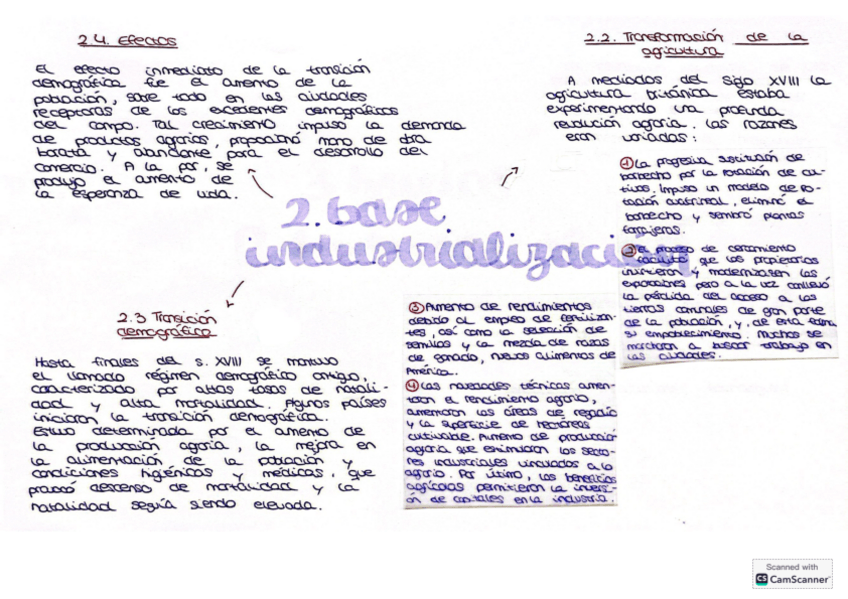 2. base
industrialización
2.2. Transformación de la
agricultura
A mediados del siglo XVIII la
agricultura británica estaba
experimentando una profunda
revolución agraria. Las razones
eran variadas:
① La progresiva sustitución de
barbecho por la rotación de cul-
tivos. Impuso un modelo de ro-
tación cuatrienal, eliminó el
barbecho y sembró plantas
forrajeras.
② El proceso de cercamiento
facilitó que los propietarios
invirtieran y modernizasen las
explotaciones pero a la vez conllevó
la pérdida del acceso a las
tierras comunales de gran parte
de la población, y, de esta forma,
su empobrecimiento. Muchos se
marcharon a buscar trabajo en
las ciudades.
③ Aumento de rendimientos
debido al empleo de fertilizan-
tes, así como la selección de
semillas y la mezcla de razas
de ganado, nuevos alimentos de
América.
④ Las novedades técnicas aumen-
taron el rendimiento agrario,
aumentaron las áreas de regadío
y la superficie de hectáreas
cultivable. Aumento de producción
agraria que estimularon los secto-
res industriales vinculados a lo
agrario. Por último, los beneficios
agrícolas permitieron la inversi-
ón de capitales en la industria.
2.3 Transición
demográfica
Hasta finales del s. XVIII se mantuvo
el llamado régimen demográfico antiguo,
caracterizado por altas tasas de natali-
dad y alta mortalidad. Algunos países
iniciaron la transición demográfica.
Estuvo determinada por el aumento de
la producción agraria, la mejora en
la alimentación de la población y
condiciones higiénicas y médicas, que
provocó descenso de mortalidad y la
natalidad seguía siendo elevada.
2.4. Efectos
El efecto inmediato de la transición
demográfica fue el aumento de la
población, sobre todo en las ciudades
receptoras de los excedentes demográficos
del campo. Tal crecimiento impulsó la demanda
de productos agrarios, proporcionó mano de obra
barata y abundante para el desarrollo del
comercio. A la par, se
produjo el aumento de
la esperanza de vida.
Scanned with
CS CamScanner